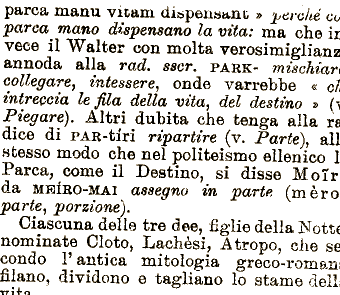 parca manu vitam dispensant » perché co
parca mano dispensano la vita: ma che in
vece il Walter con molta verosimiglianz
annoda alla rad. sscr. PARK- mischiare
collegare, intessere, onde varrebbe « ch
intreccia le fila della vita, del destino » (v
Piegare). Altri dubita che tenga alla ra
dice di PAR-tíri ripartire (v. Parte), all
stesso modo che nel politeismo ellenico l
Parca, come il Destino, si disse Moîr
da MEÍRO-MAI assegno in parte (mèro
parte, porzione).
Ciascuna delle tre dee, figlie della Notte
nominate Cloto, Lachèsi, Atropo, che se
condo l'antica mitologia greco-roman
filano, dividono e tagliano lo stame dell
vita